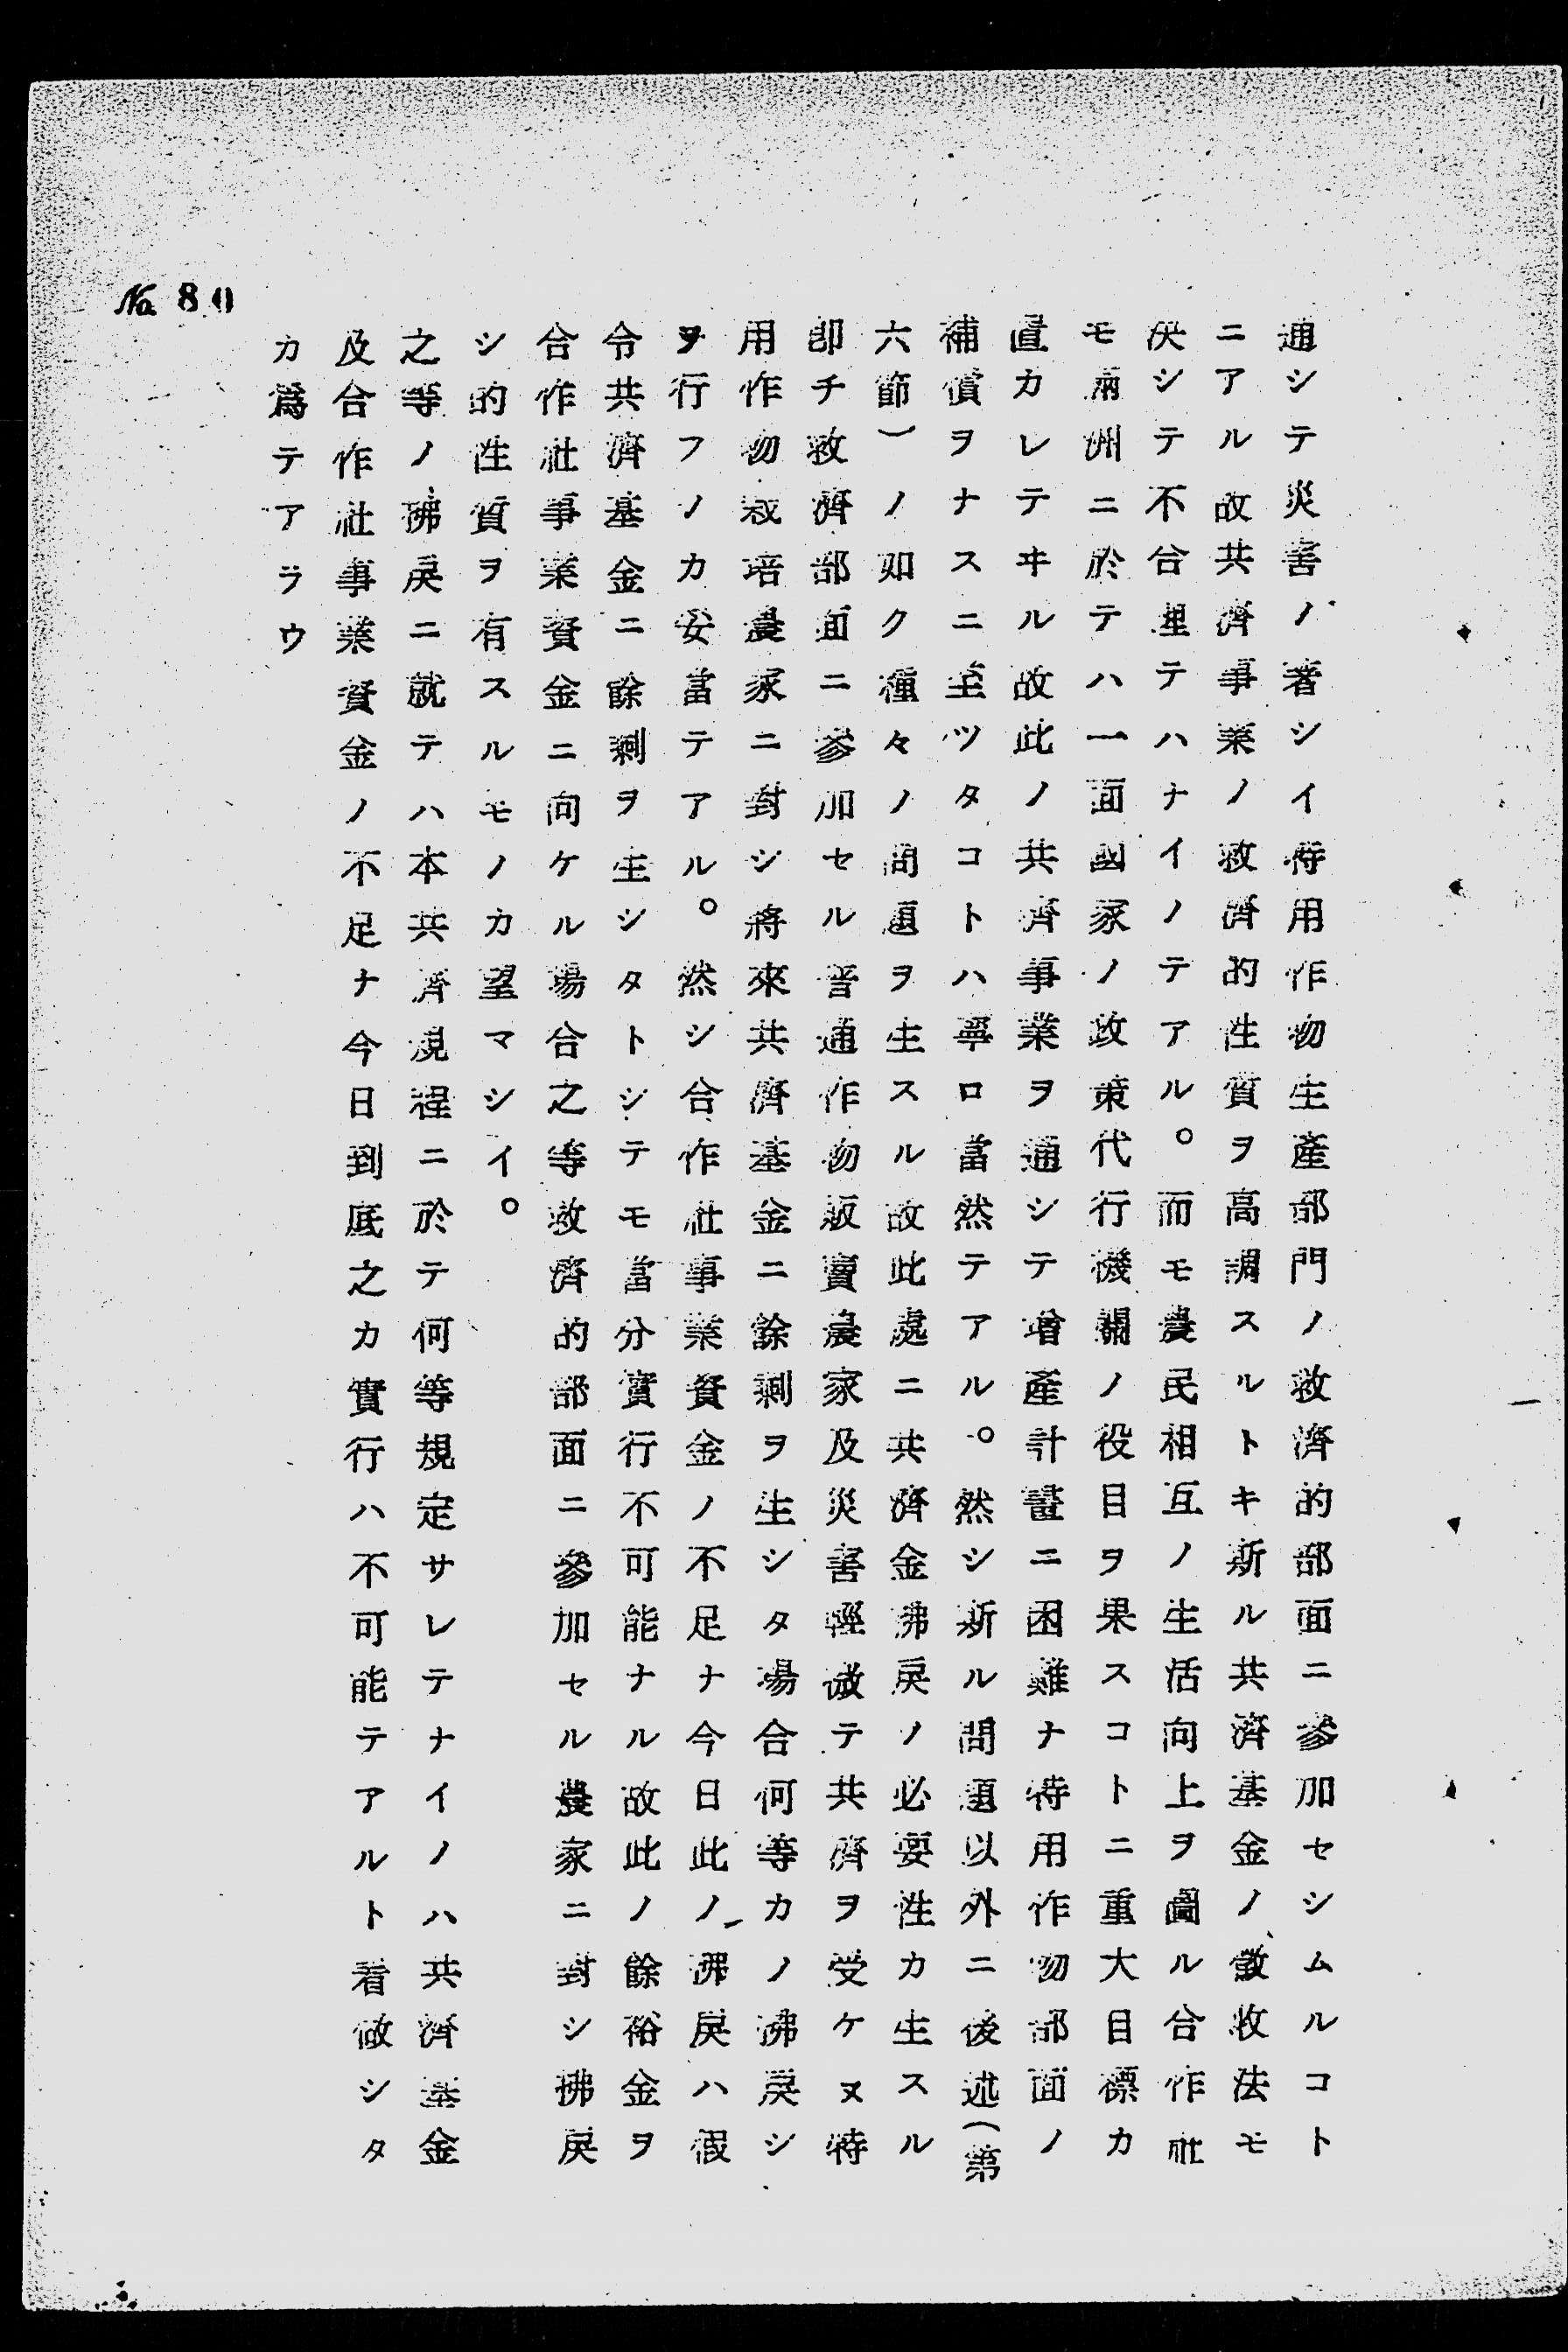 通シテ災害ノ著シイ特用作物生產部門ノ救濟的部面ニ參加セシムルコト
ニアル故共濟事業ノ救濟的性質ヲ高調スルトキ斯ル共濟基金ノ徵收法モ
決シテ不合理テハナイノテアル。而モ農民相互ノ生活向上ヲ圖ル合作社
モ滿洲ニ於テハ一面國家ノ政策代行機關ノ役目ヲ果スコトニ重大目標カ
置カレテヰル故此ノ共濟事業ヲ通シテ增產計畫ニ困難ナ特用作物部面ノ
補償ヲナスニ至ツタコトハ寧ロ當然テアル。然シ斯ル問題以外ニ後述(第
六節)ノ如ク種々ノ問題ヲ生スル故此處ニ共濟金拂戾ノ必要性カ生スル
卽チ救濟部面ニ參加セル普通作物販賣農家及災害輕微テ共濟ヲ受ケヌ特
用作物栽培農家ニ對シ將來共濟基金ニ餘剩ヲ生シタ場合何等カノ拂戾シ
ヲ行フノカ妥當テアル。然シ合作社事業資金ノ不足ナ今日此ノ拂戾ハ假
令共濟基金ニ餘剩ヲ生シタトシテモ當分實行不可能ナル故此ノ餘裕金ヲ
合作社事業資金ニ向ケル場合之等救濟的部面ニ參加セル農家ニ對シ拂戾
シ的性質ヲ有スルモノカ望マシイ。
之等ノ拂戾ニ就テハ本共濟規程ニ於テ何等規定サレテナイノハ共濟基金
及合作社事業資金ノ不足ナ今日到底之カ實行ハ不可能テアルト看做シタ
カ爲テアラウ
No. 80